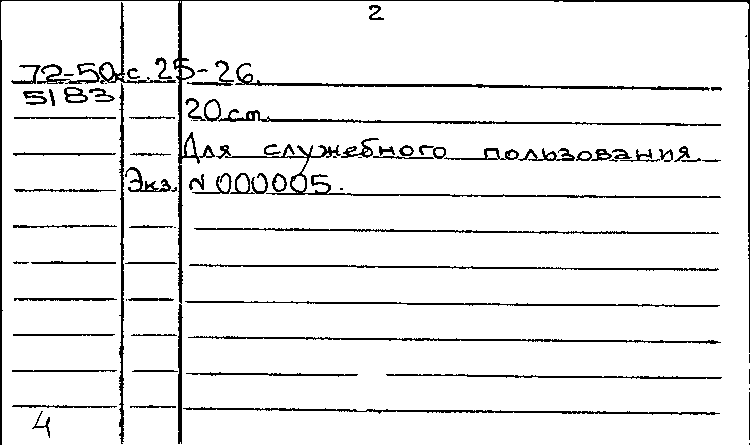 2
72-50 с. 25-26.
5183
20 cm.
Для служебного пользования
Экз. N 000005.
4